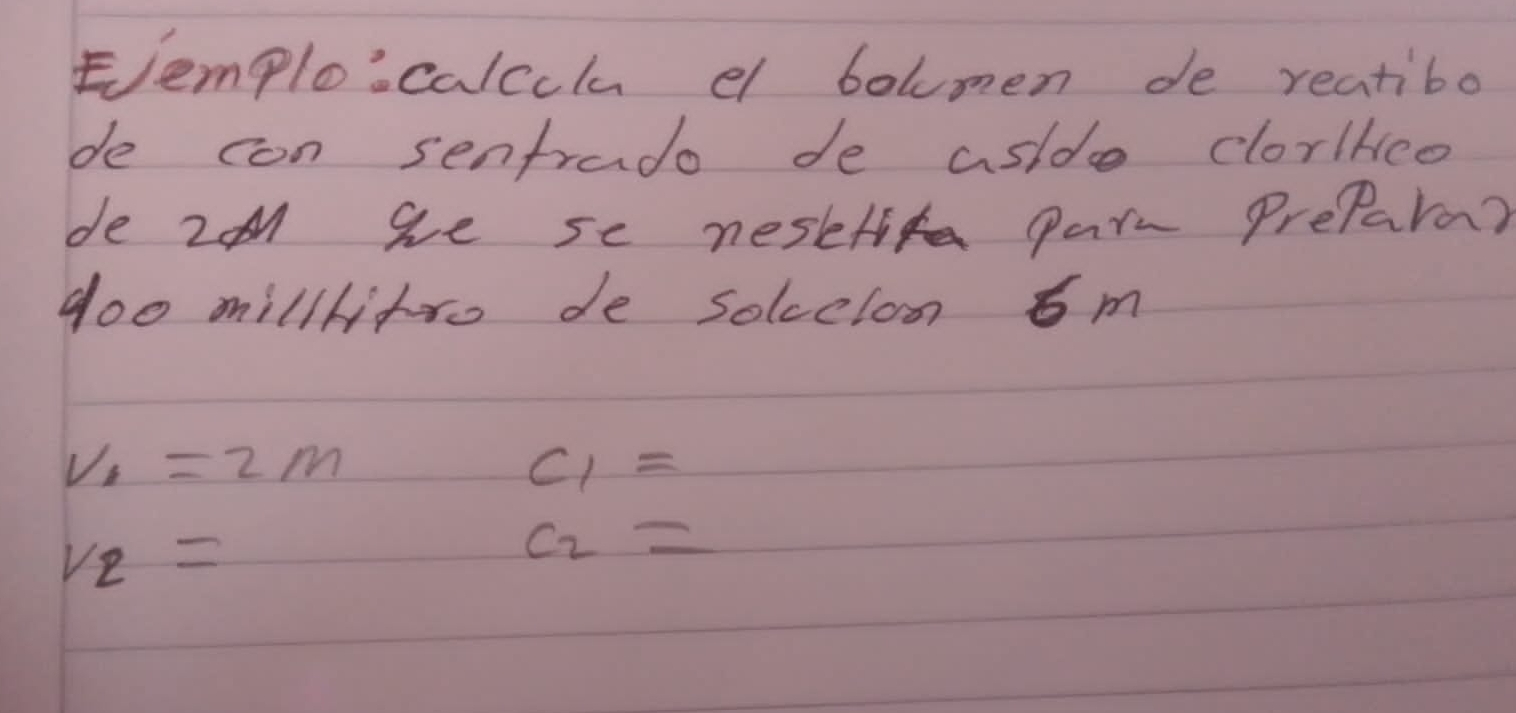 Ejemplo: calcula el bolumen de reatibo
de con sentrado de asido clorihico
de 2M que se nesetita para preparar
400 mililitro de solucion 6 m
V1 = 2 m C1 =
V2 = C2 =